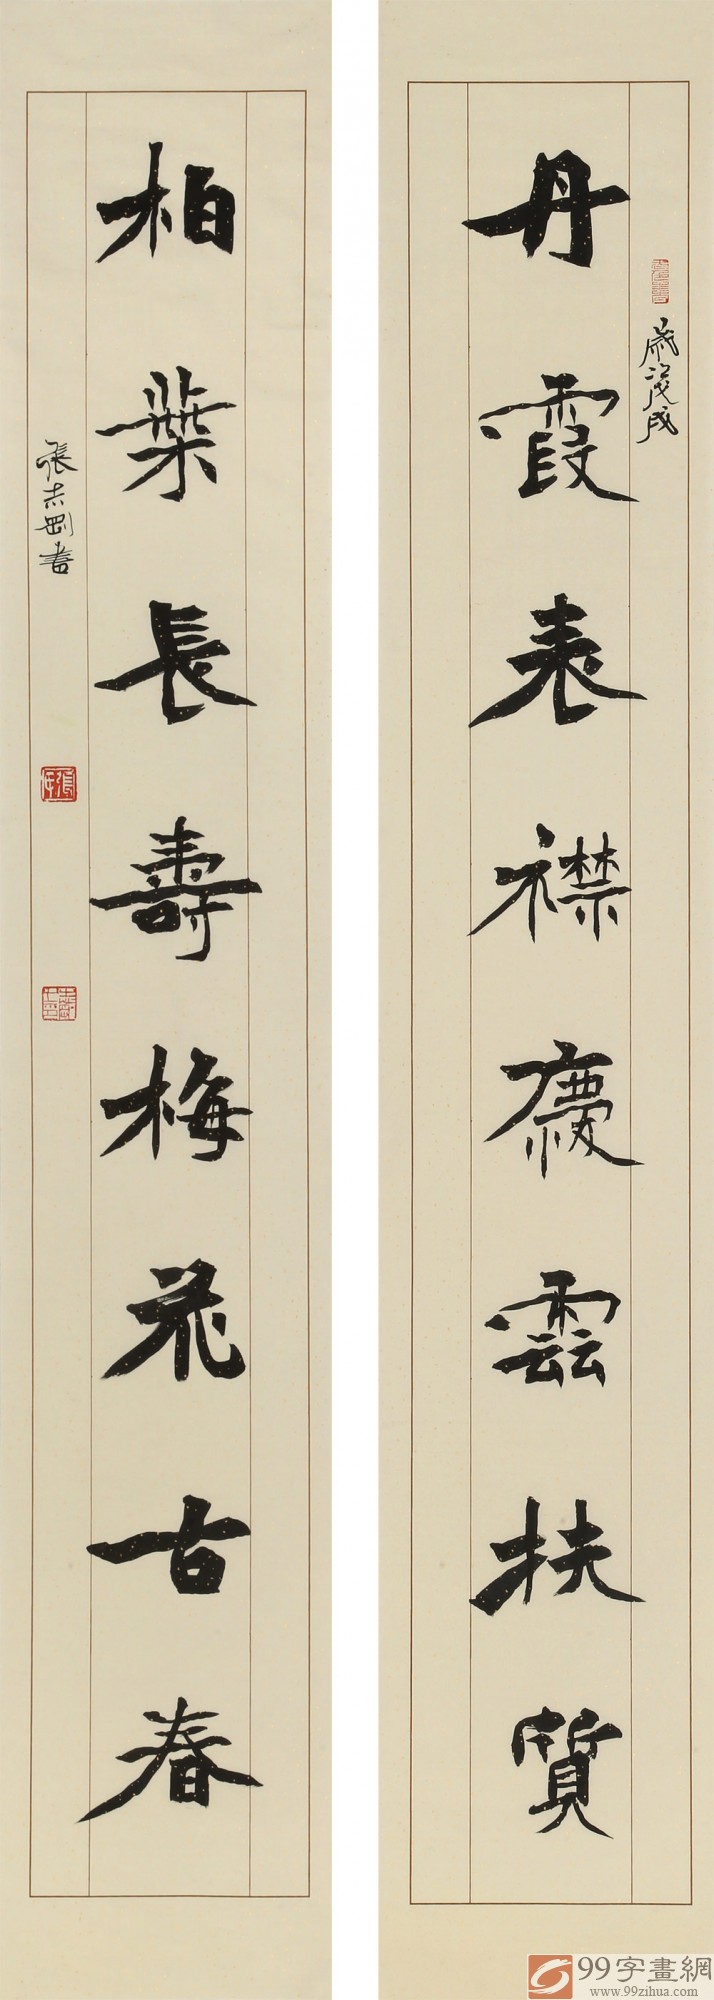 歲次戊戌
丹霞表襟慶雲扶質
柏葉長壽梅花古春
張志剛書
99字畫網
www.99zihua.com